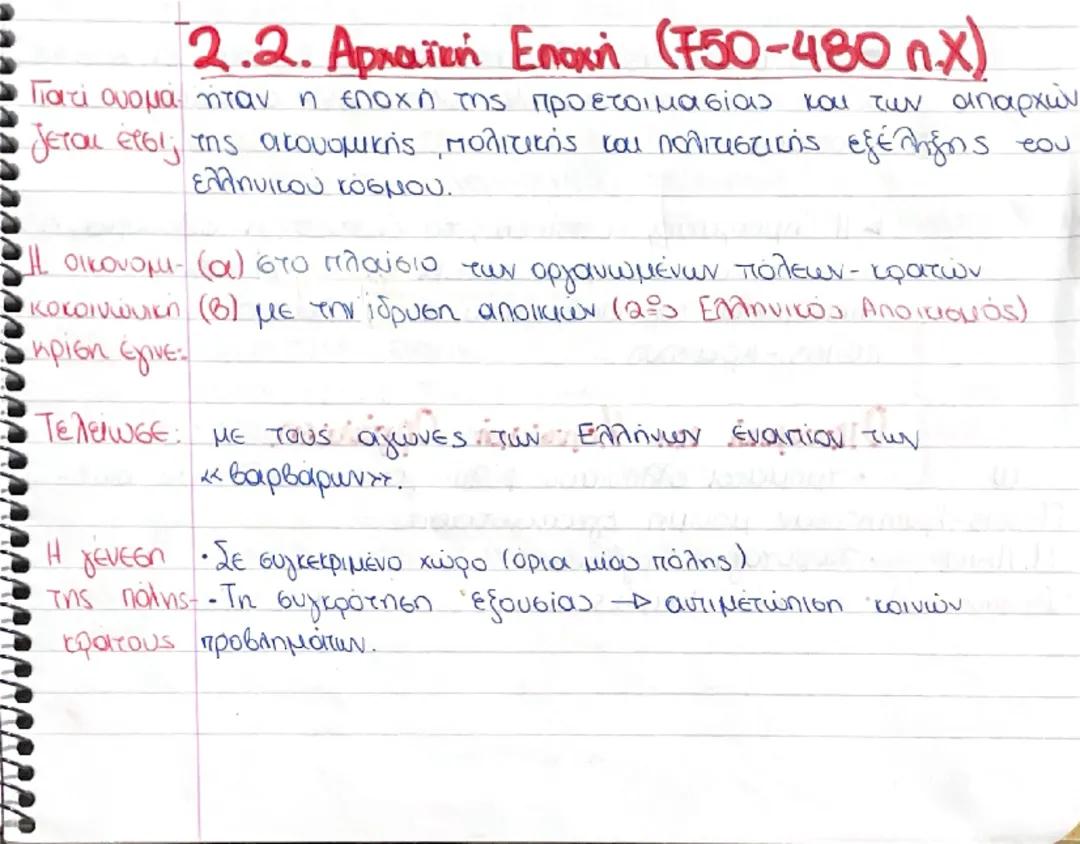 2.2. Αρχαϊκή Εποχή (750-480 π.Χ)
Γιατί ονομά ήταν η εποχή της προετοιμασίας και των απαρχών
ζεται έτσι; της οικονομικής, πολιτικής και πολιτιστικής εξέλιξης του
ελληνικού κόσμου.
Η οικονομι- (α) στο πλαίσιο των οργανωμένων πόλεων-κρατών
κοκοινωνική (β) με την ίδρυση αποικιών (2ος Ελληνικός Αποικισμός)
κρίση έγινε:
Τελείωσε: με τους αγώνες των Ελλήνων εναντίον των
«βαρβάρων».
Η γένεση · Σε συγκεκριμένο χώρο (όρια μίας πόλης)
της πόλης- · Τη συγκρότηση εξουσίας → αντιμετώπιση κοινών
κράτους προβλημάτων.